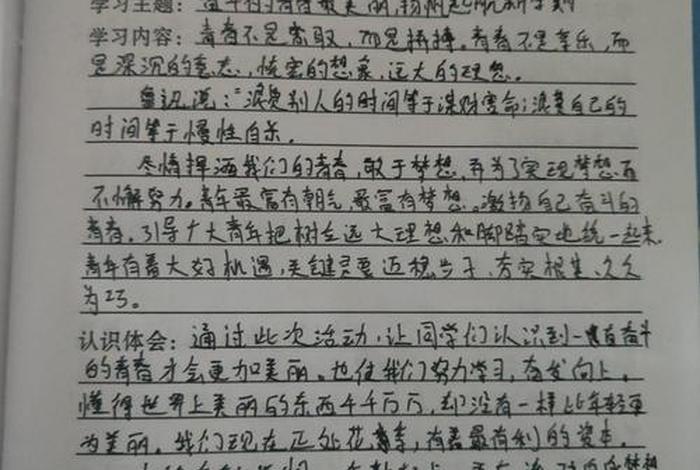 学习主题：奋斗的青春最美丽，扬帆起航新学期
学习内容：青春不是索取，而是拼搏。青春不是享乐，而
是深沉的意志，恢宏的想象，远大的理想。
鲁迅说：“浪费别人的时间等于谋财害命；浪费自己的
时间等于慢性自杀。
尽情挥洒我们的青春，敢于梦想，并为了实现梦想而
不懈努力。青年最富有朝气，最富有梦想。激扬自己奋斗的
青春，引导广大青年把树立远大理想和脚踏实地统一起来，
青年有着大好机遇，关键是要迈稳步子、夯实根基、久久
为功。
认识体会：通过此次活动，让同学们认识到一有奋斗
的青春才会更加美丽。也使我们努力学习，奋发向上。
懂得世界上美丽的东西千千万万，却没有一样比年轻更
为美丽。我们现在正处花季，有着最有利的资本。